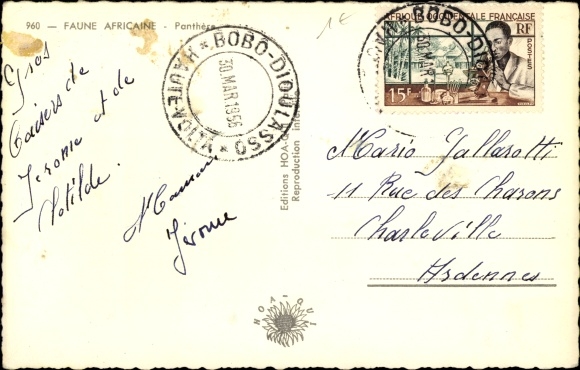 960 — FAUNE AFRICAINE - Panthère
1€
Gros
Baisers de
Jérome et de
Clotilde.
Jérome
BOBO-DIOULASSO
HAUTE-VOLTA
30 MAR 1956
AFRIQUE OCCIDENTALE FRANÇAISE
RF
POSTES
15F
Editions HOA-
Reproduction
HOA-QUI
Mario Gallarotti
11 Rue des Charons
Charleville
Ardennes